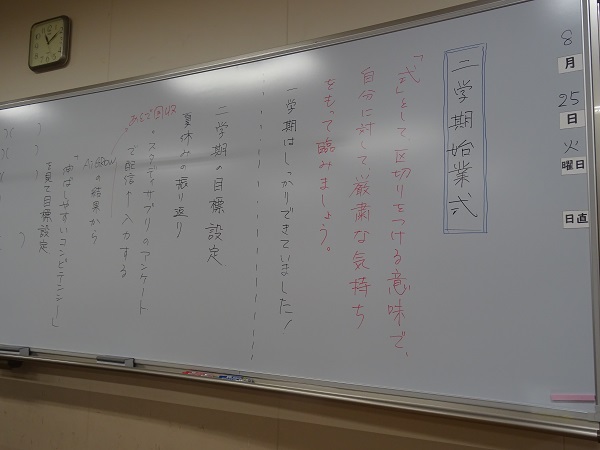 8
月
25
日
火
曜日
日直
二学期始業式
「式」として区切りをつける意味で、
自分に対して、厳粛な気持ち
をもって臨みましょう。
一学期はしっかりできていました!
二学期の目標設定
夏休みの振り返り
あとで回収
・スタディサプリのアンケート
で配信→入力する
の結果から
「伸ばしやすいコンピテンシー」
を見て目標設定